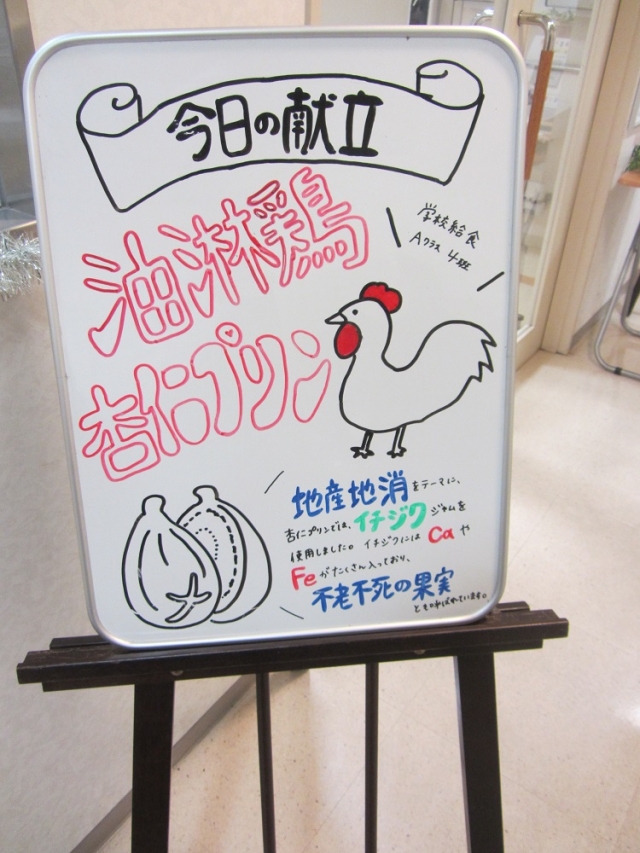 今日の献立
学校給食
Aクラス 4班
油淋鶏
杏仁プリン
地産地消をテーマに、
杏仁プリンでは、イチジクジャムを
使用しました。イチジクには Ca や
Fe がたくさん入っており、
不老不死の果実
とも呼ばれています。